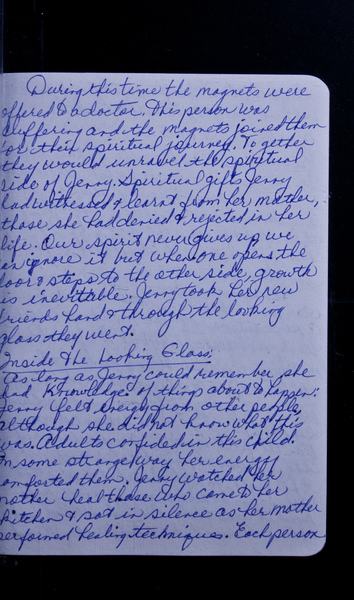 During this time the magnets were
offered to a doctor. This person was
suffering and the magnets joined them
for their spiritual journey. Together
they would unravel the spiritual
side of Jenny. Spiritual gifts Jenny
had witnessed & learnt from her mother,
those she had denied & rejected in her
life. Our spirit never gives up we
can ignore it but when one opens the
door & steps to the other side, growth
is inevitable. Jenny took her new
friends hand & through the looking
glass they went.
Inside the Looking Glass:
As long as Jenny could remember she
had knowledges of things about to happen.
Jenny felt energy from other people,
although she did not know what this
was. Adults confided in this child
in some strange way her energy
comforted them. Jenny watched her
mother heal those who came to her
kitchen & sat in silence as her mother
performed healing techniques. Each person